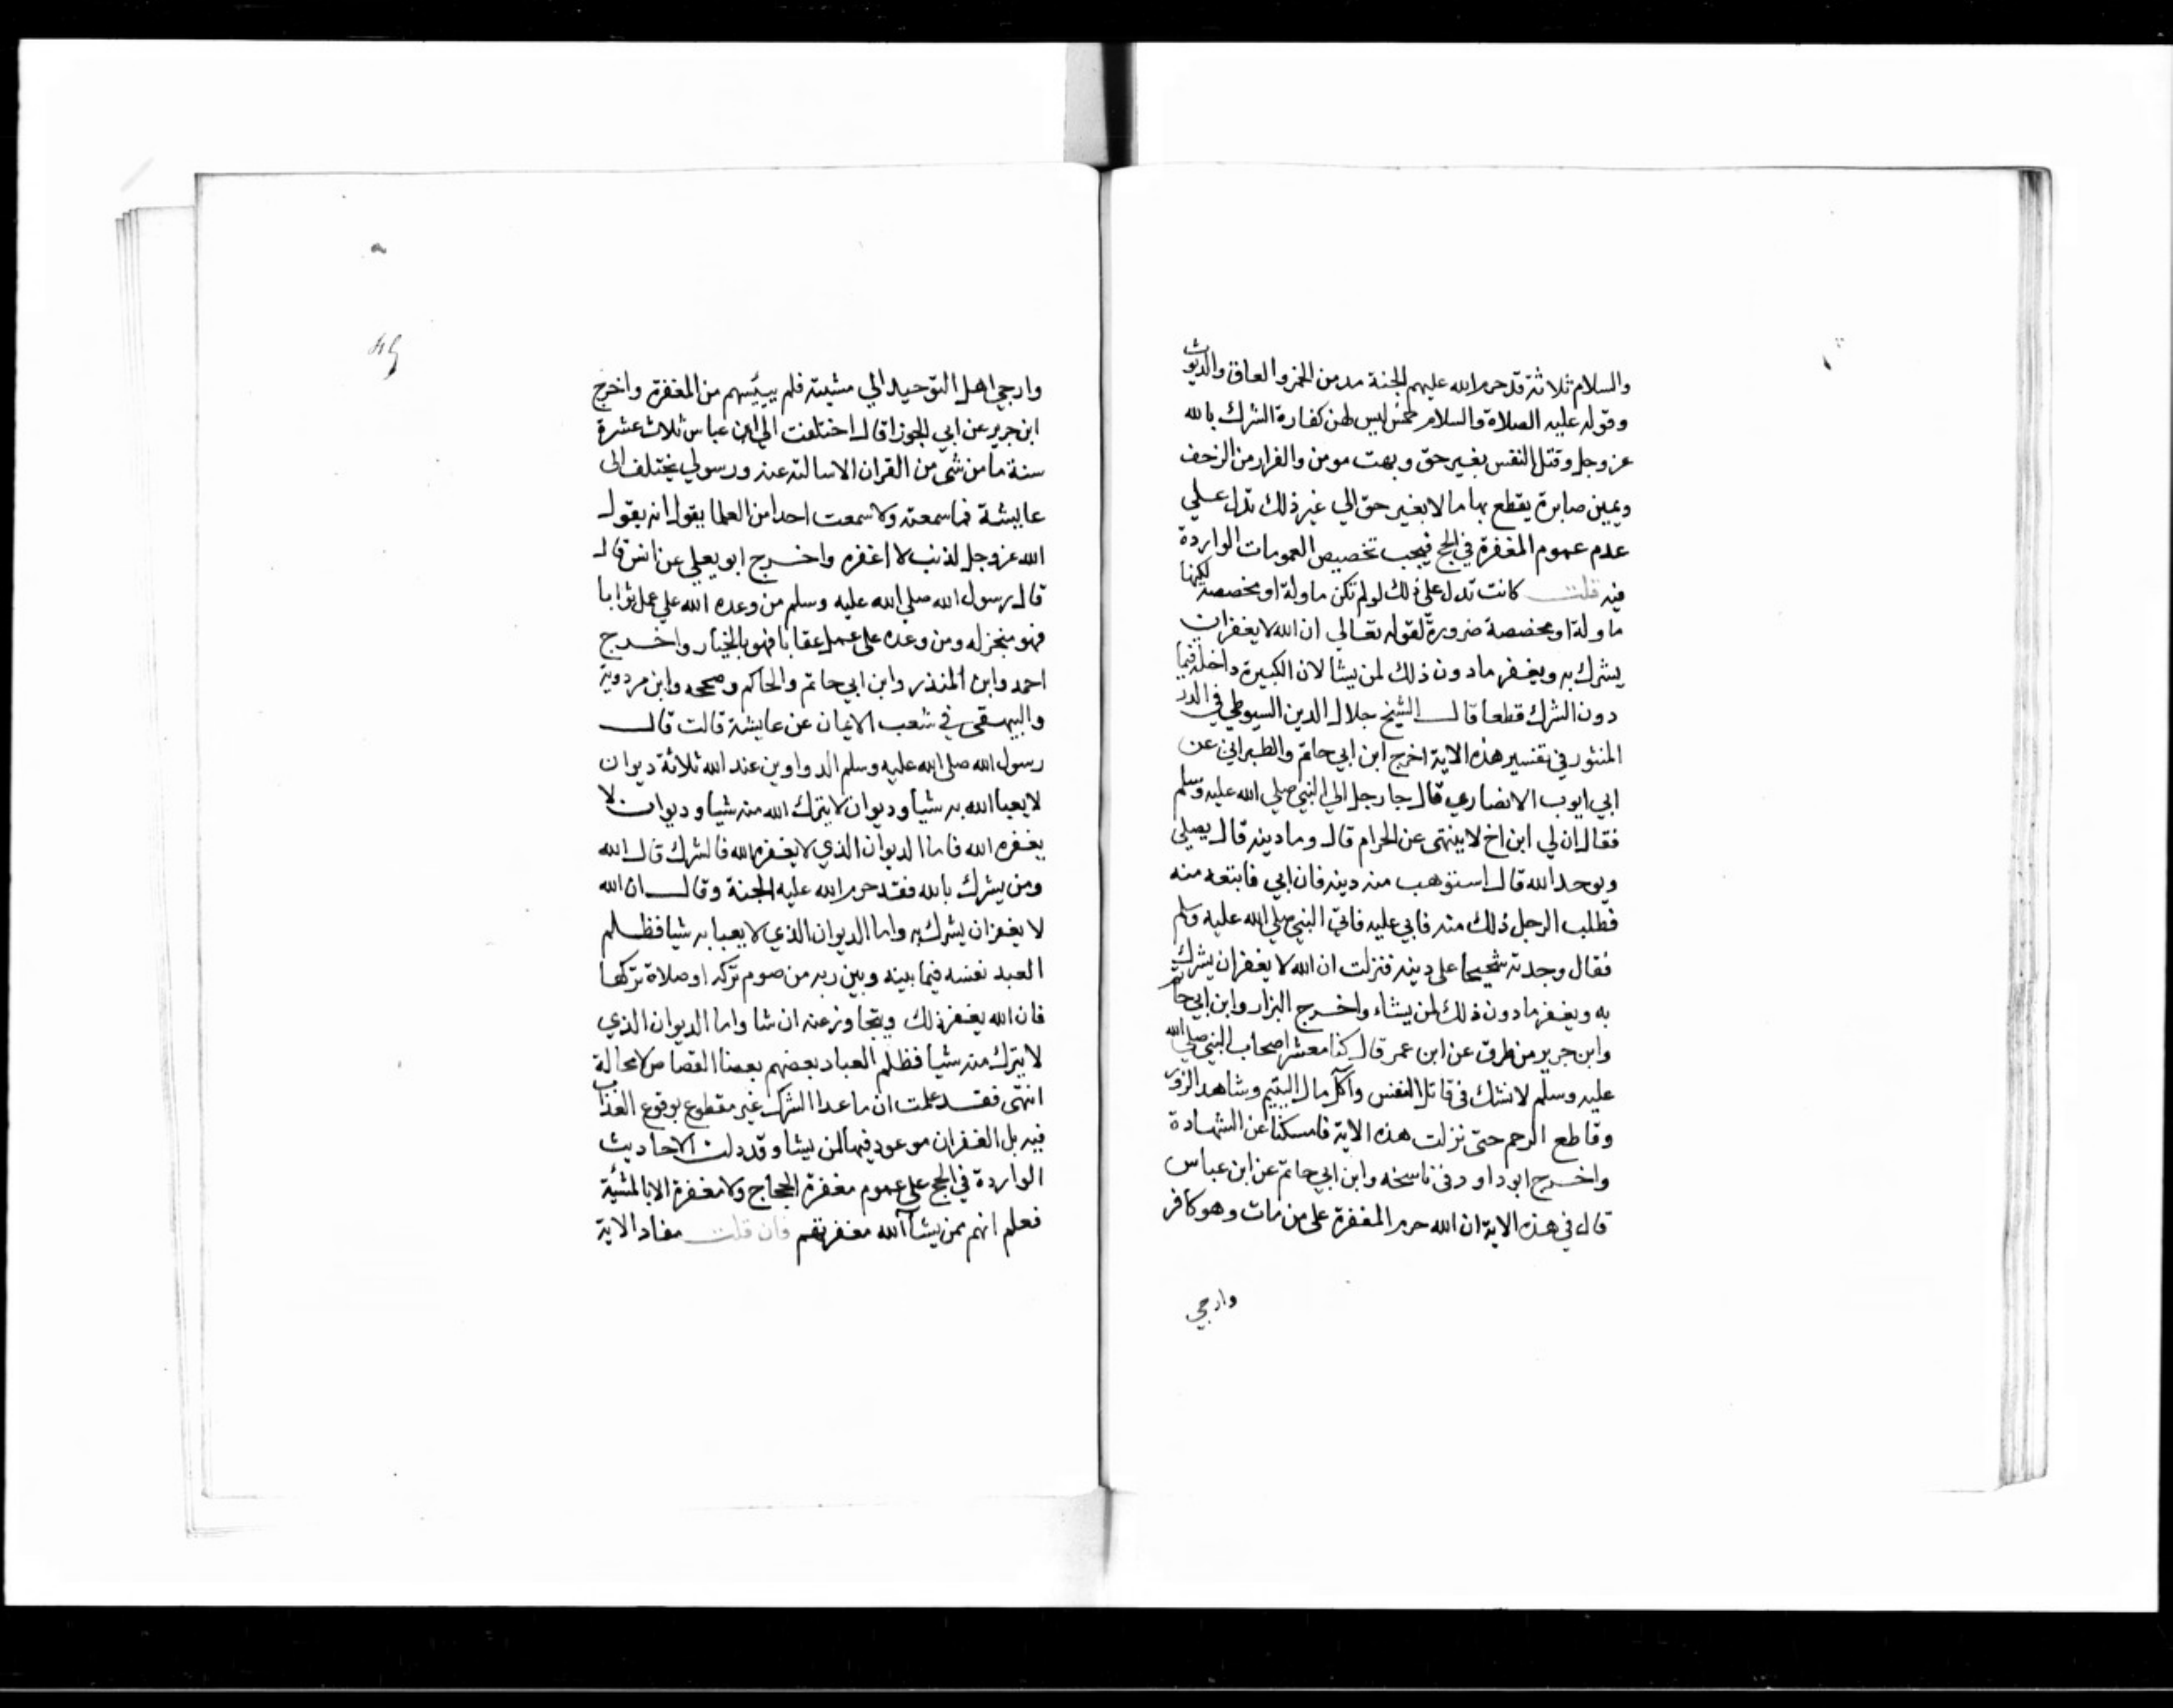 والسلام ثلاثة قد حرم الله عليهم الجنة مدمن الخمر والعاق والديوث
وقوله عليه الصلاة والسلام خمس ليس لهن كفارة الشرك بالله
عز وجل وقتل النفس بغير حق وبهت مومن والفرار من الزحف
ويمين صابرة يقطع بها مالا بغير حق الي غير ذلك تدل علي
عدم عموم المغفرة في الحج فيجب تخصيص العمومات الواردة
فيه قلت كانت تدل على ذلك لو لم تكن ماولة او مخصصة لكنها
ماولة او مخصصة ضرورة لقوله تعالي ان الله لا يغفر ان
يشرك به ويغفر مادون ذلك لمن يشا لان الكبيرة داخلة فيما
دون الشرك قطعا قال الشيخ جلال الدين السيوطي في الدر
المنثور في تفسير هذه الاية اخرج ابن ابي حاتم والطبراني عن
ابي ايوب الانصاري قال جا رجل الي النبي صلي الله عليه وسلم
فقال ان لي ابن اخ لا ينتهى عن الحرام قال وما دينه قال يصلي
ويوحد الله قال استوهب منه دينه فان ابي فابتعه منه
فطلب الرجل ذلك منه فابي عليه فاتى النبي صلي الله عليه وسلم
فقال وجدته شحيحا على دينه فنزلت ان الله لا يغفر ان يشرك
به ويغفر مادون ذلك لمن يشاء واخرج البزار وابن ابي حاتم
وابن جرير من طرق عن ابن عمر قال كنا معشر اصحاب النبي صلي الله
عليه وسلم لا نشك في قاتل النفس وآكل مال اليتيم وشاهد الزور
وقاطع الرحم حتى نزلت هذه الاية فامسكنا عن الشهادة
واخرج ابو داود في ناسخه وابن ابي حاتم عن ابن عباس
قال في هذه الاية ان الله حرم المغفرة على من مات وهو كافر
وارجي
وارجي اهل التوحيد الي مشيته فلم ييئسهم من المغفرة واخرج
ابن جرير عن ابي الجوزا قال اختلفت الي ابن عباس ثلاث عشرة
سنة ما من شئ من القران الا سالته عنه ورسولي يختلف الى
عايشة فما سمعته ولا سمعت احدا من العلما يقول انه يقول
الله عز وجل لذنب لا اغفره واخرج ابو يعلي عن انس قال
قال رسول الله صلي الله عليه وسلم من وعده الله علي عمل ثوابا
فهو منجز له ومن وعده على عمل عقابا فهو بالخيار واخرج
احمد وابن المنذر وابن ابي حاتم والحاكم وصححه وابن مردوية
والبيهقى في شعب الايمان عن عايشة قالت قال
رسول الله صلي الله عليه وسلم الدواوين عند الله ثلاثة ديوان
لا يعبا الله به شيا وديوان لا يترك الله منه شيا وديوان لا
يغفره الله فاما الديوان الذي لا يغفره الله فالشرك قال الله
ومن يشرك بالله فقد حرم الله عليه الجنة وقال ان الله
لا يغفر ان يشرك به واما الديوان الذي لا يعبا به شيا فظلم
العبد نفسه فيما بينه وبين ربه من صوم تركه او صلاة تركها
فان الله يغفر ذلك ويتجاوز عنه ان شا واما الديوان الذي
لا يترك منه شيا فظلم العباد بعضهم بعضا القصاص لا محالة
انتهى فقد علمت ان ما عدا الشرك غير مقطوع بوقوع العذاب
فيه بل الغفران موعود فيها لمن يشا وقد دلت الاحاديث
الواردة في الحج علي عموم مغفرة الحجاج ولا مغفرة الا بالمشئية
فعلم انهم ممن يشا الله مغفرتهم فان قلت مفاد الاية